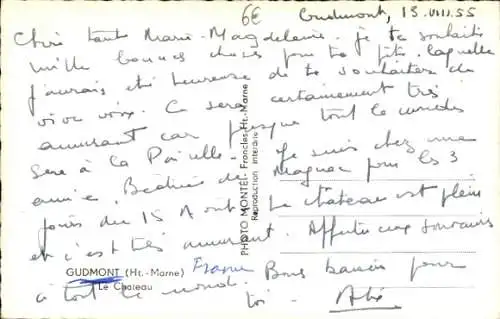 6€
Gudmont, 13.VIII.55
Chère tante Marie-Magdeleine. je te souhaite
mille bonnes choses pour ta fête, laquelle
j'aurais été heureuse de te souhaiter de
vive voix. Ce sera certainement très
amusant car presque tout le monde
sera à la Je suis chez une
amie. Béatrice de pour les 3
jours du 15 Août. Le château est plein
et c'est très amusant. Affectueux souvenirs
à tout le monde. Bons baisers pour
toi.
GUDMONT (Ht.-Marne) France
Le Château
PHOTO MONTEL - Froncles Ht.-Marne
Reproduction interdite